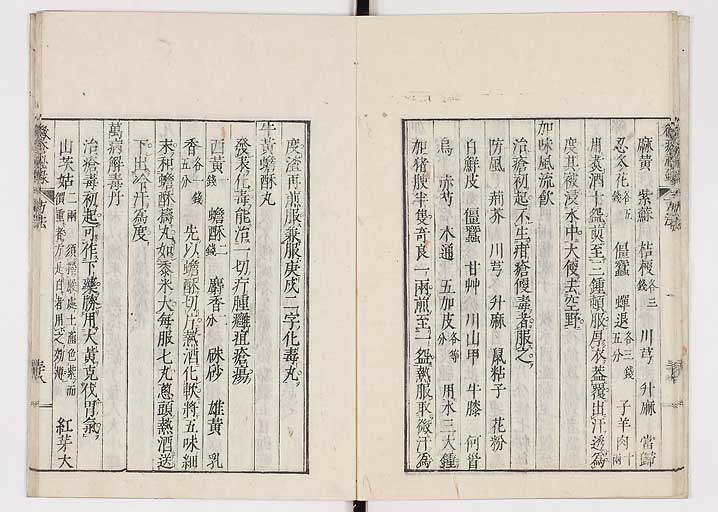 麻黃 紫蘇 桔梗各三錢 川芎 升麻 當歸
忍冬花各五錢 僵蠶 蟬退各三錢五分 子羊肉十兩
用煑酒十碗煎至三鍾頓服厚衣蓋覆出汗透爲
度其被浸水中大便去空野
加味風流飲
治瘡初起不生疳瘡便毒者服之
防風 荊芥 川芎 升麻 鼠粘子 花粉
白鮮皮 僵蠶 甘艸 川山甲 牛膝 何首
烏 赤芍 木通 五加皮各等分 用水三大鍾
加猪胰半隻奇良一兩煎至一碗熱服取微汗爲
度渣再煎服兼服庚戌二字化毒丸
牛黃蟾酥丸
發表化毒能治一切疔腫癰疽瘡瘍
西黃一錢 蟾酥二錢 麝香二分 硃砂 雄黃 乳
香各一錢五分 先以蟾酥切片熱酒化軟將五味細
末和蟾酥擣丸如黍米大每服七丸蔥頭熱酒送
下出冷汗爲度
萬病解毒丹
治瘡毒初起可作下藥勝用大黃克伐胃氣
山茨姑二兩 紅芽大